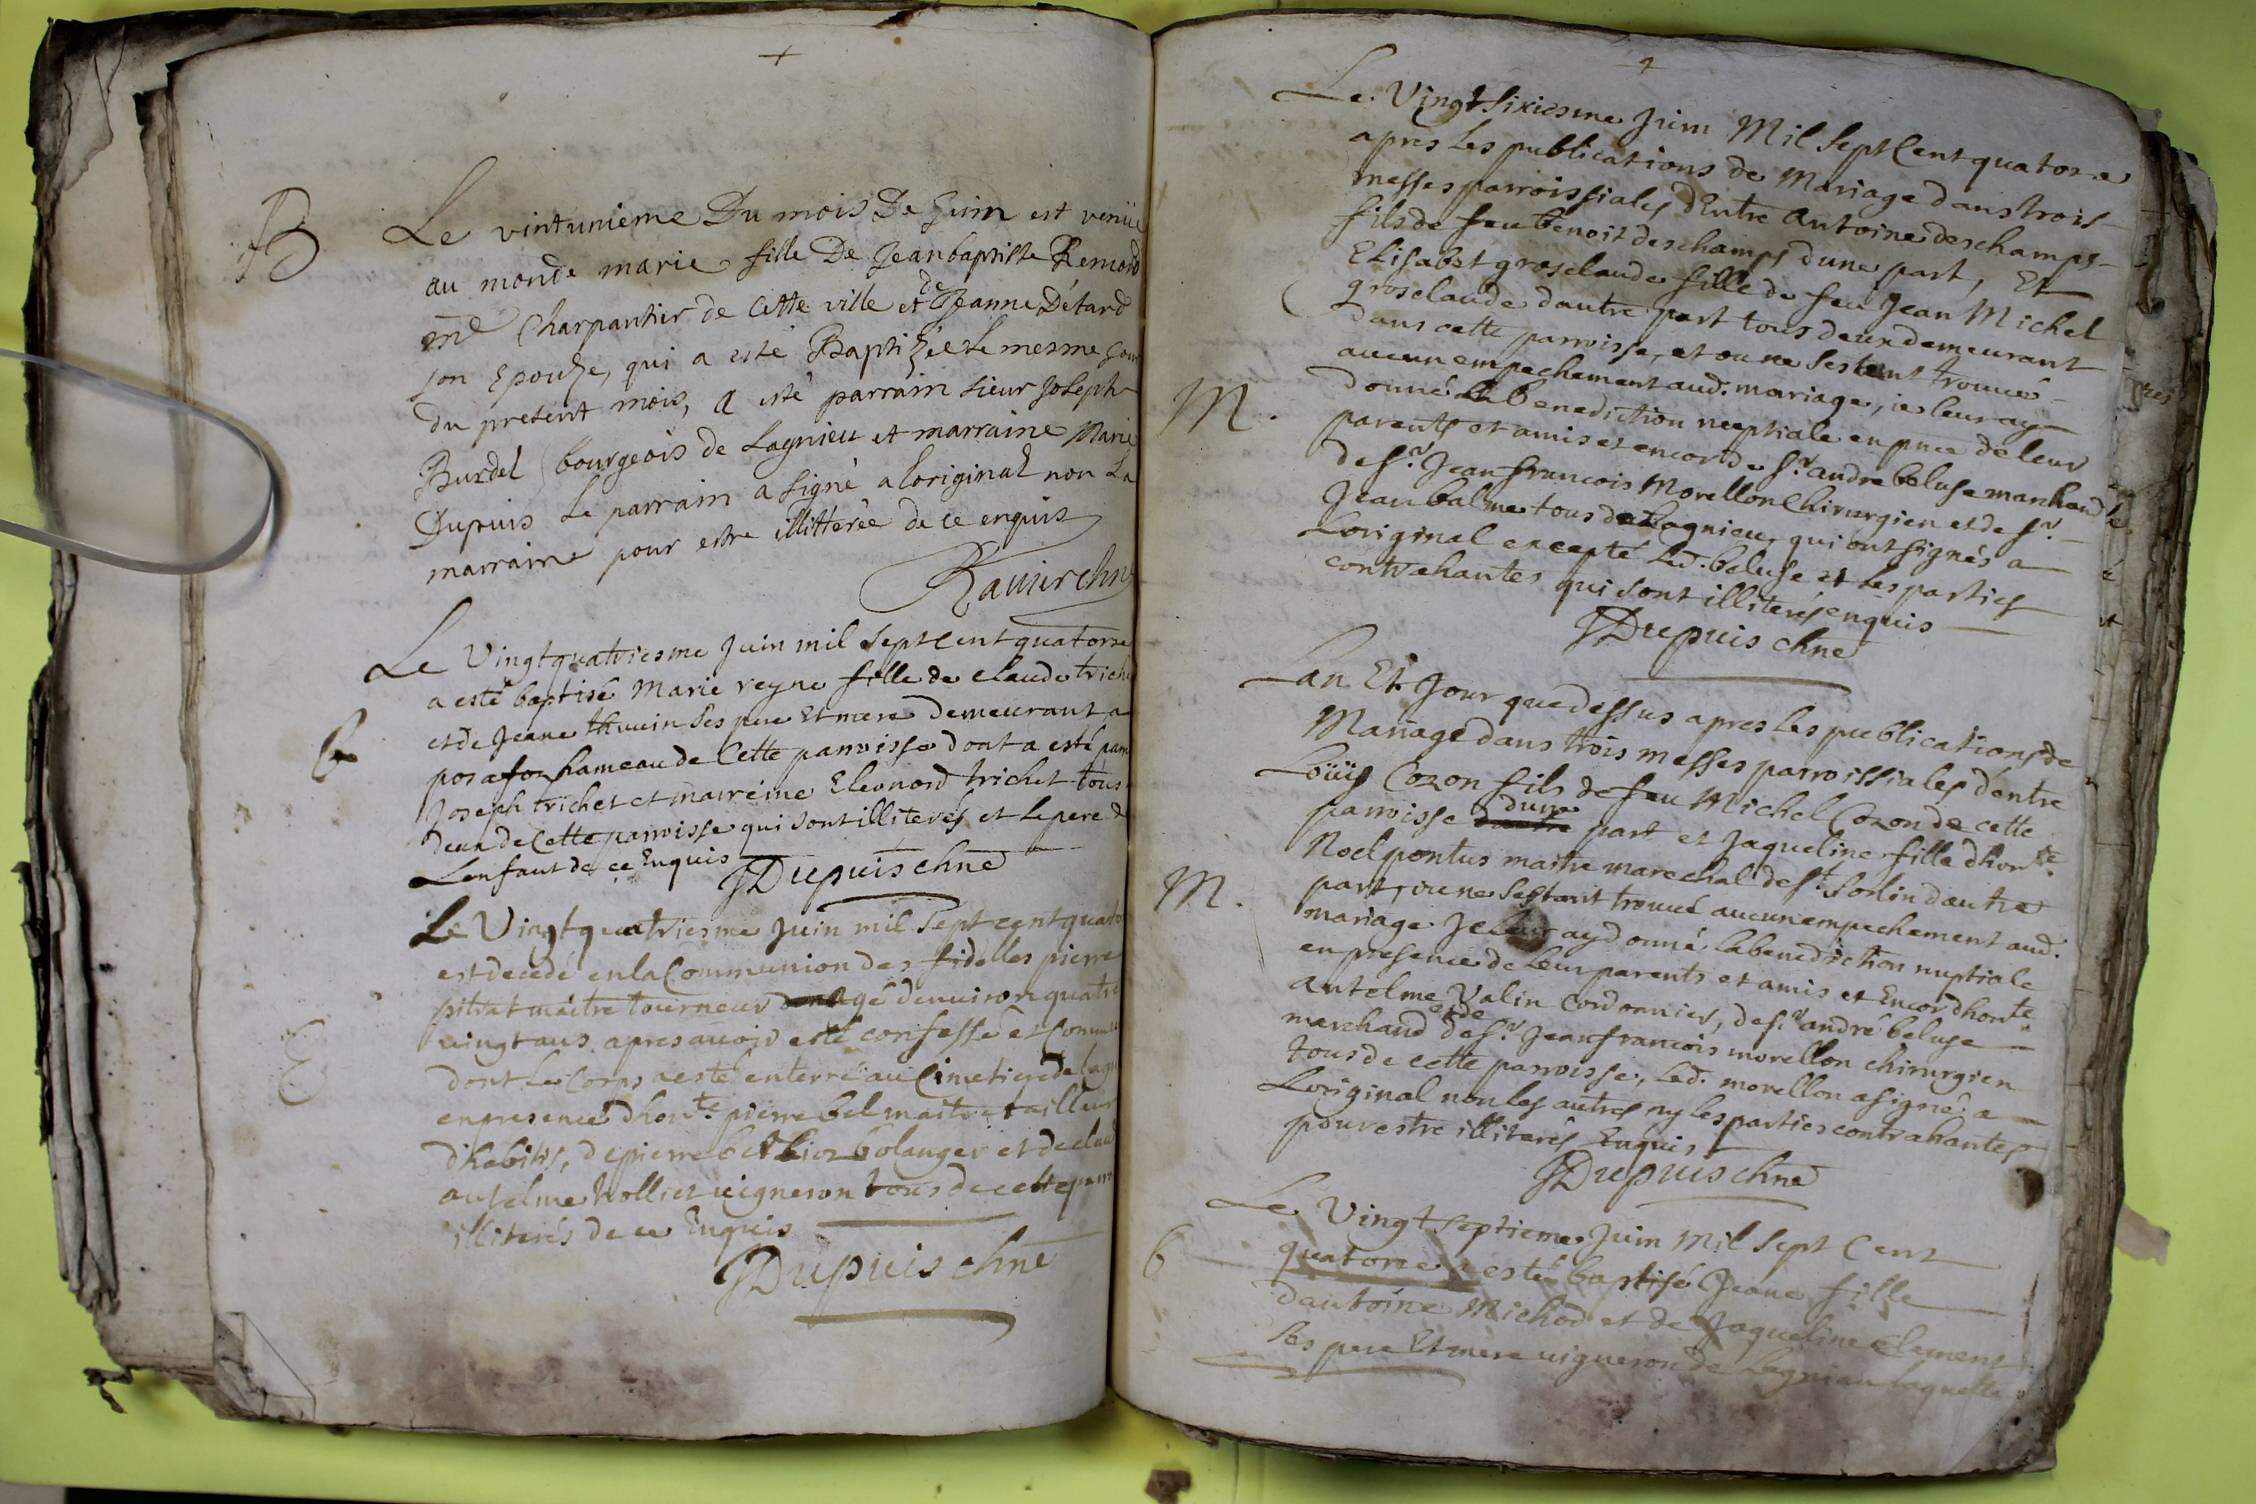 +
B
Le vintunieme Du mois De Juin est venüe
au monde marie fille De Jean baptiste Remond
me Charpantier de Cette ville et de Jeanne Détard
son Epouze, qui a esté Baptizée le mesme jour
du present mois, a esté parrain sieur Joseph
Burdel bourgeois de Lagnieu et marraine Marie
Dupuis le parrain a signé a loriginal non la
marraine pour estre illitterée de ce enquis
Ravier chne
Le Vingtquatriesme Juin mil sept Cent quatorze
a esté baptisé Marie reyne fille de Claude trichet
b
et de Jeane ses pere Et mere demeurant a
posafoz hameau de Cette parroisse dont a esté parr
Joseph trichet et mareine Eleonord trichet tous
deux de Cette parroisse qui sont illiterés et le pere d
Lenfant de ce Enquis
JDupuis chne
Le Vingtquatriesme Juin mil sept cent quato
est decedé en la Communion des fidelles pierre
pitrat maitre tourneur agé denuiron quatre
E
uingt ans apres auoir esté confessé et Commu
dont le Corps a esté enterré au Cimetiere de lagn
en presence dhonte pierre bel maitre tailleur
dhabits, de pierre bolanger et de claud
antelme holliet uigneron tous de cette parr
illiterés de ce Enquis
JDupuis chne
+
Le Vingt sixiesme Juin Mil Sept Cent quatorze
apres les publications de Mariage dans trois
messes parroissiales dEntre Antoine deschamps
fils de feu benoit deschamps dune part, Et
Elisabet grosclaude fille de feu Jean Michel
grosclaude dautre part tous deux demeurant
dans cette parroisse, et ou ne sestant trouué
aucun empechement aud. mariage, ie leur ay
M.
donné la benediction nuptiale en pnce de leur
parents et amis et encor de sr. andre beluse marchand
de sr. Jean francois Morellon Chirurgien et de sr.
Jean balme tous de Lagnieu, qui ont signés a
Loriginal excepté led. beluse et les parties
contrahantes qui sont illiterés enquis
JDupuis chne
Lan Et Jour que dessus apres les publications de
Mariage dans trois messes parroissiales dentre
Loüis Cozon fils de feu Michel Cozon de cette
parroisse dune part et Jaqueline fille dhonte.
Noel pontus maitre marechal de st. Sorlin dautre
M.
part, ou ne sestant trouué aucun empechement aud.
mariage Je leur ay donné la benediction nuptiale
en presence de leur parents et amis et Encor dhonte.
Antelme Valin Cordonnier, de sr. andré beluse
marchand et de sr. Jean francois morellon chirurgien
tous de cette parroisse, led. morellon a signé a
Loriginal non les autres ny les parties contrahantes
pour estre illiterés Enquis
JDupuis chne
Le Vingt septieme Juin Mil Sept Cent
b
quatorze a esté baptisé Jeane fille
dantoine Michod et de Jaqueline Clement
ses pere Et mere uigneron de Lagnieu laquelle